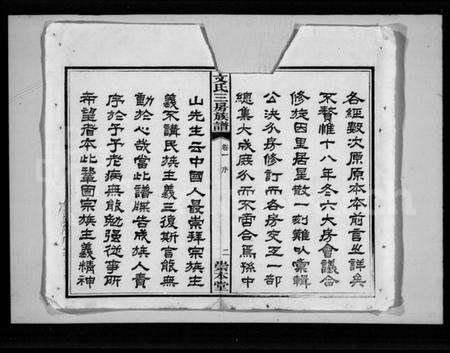 各經數次原原本本前言之詳矣
不贅惟十八年冬六大房會議合
修族因里居星散一刻難以彙輯
公決分房修訂而各房交互一部
總集大成庶分而不啻合焉孫中
文氏三房族譜
卷一序
二
崇本堂
山先生云中國人最崇拜宗族主
義不講民族主義三復斯言能無
動於心哉當此譜牒告成族人責
序於予予老病無能勉强從事所
希望者本此鞏固宗族主義精神